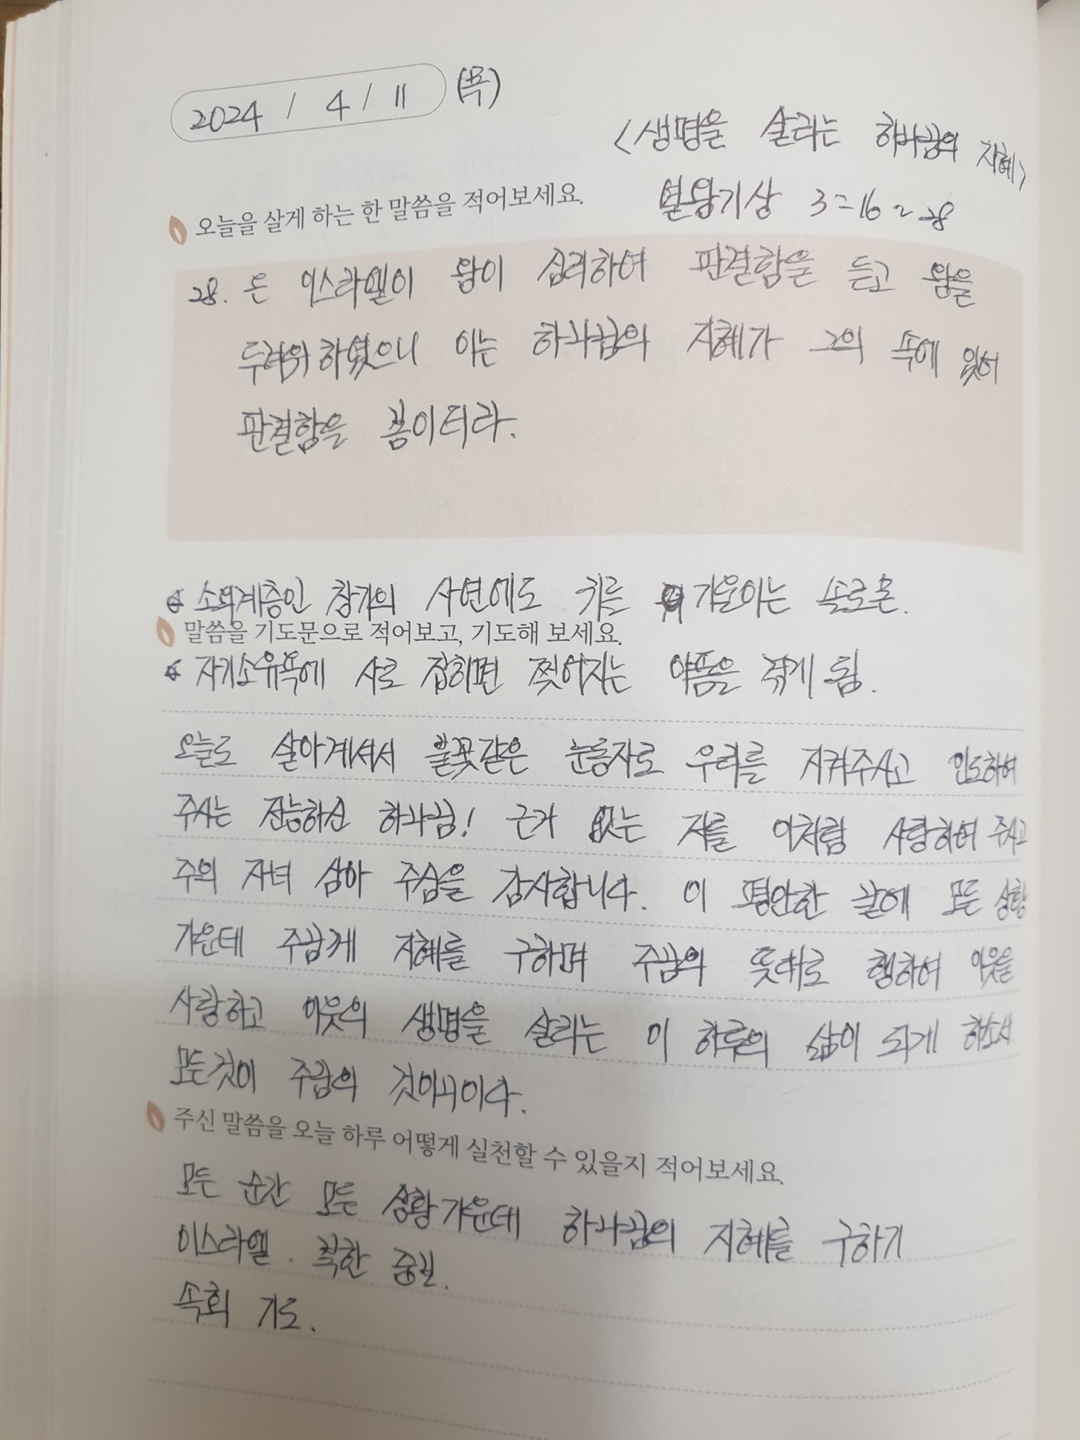 2024 / 4 / 11 (목)
<생명을 살리는 하나님의 지혜>
오늘을 살게 하는 한 말씀을 적어보세요.
열왕기상 3=16~28
28. 온 이스라엘이 왕이 심리하여 판결함을 듣고 왕을
두려워하였으니 이는 하나님의 지혜가 그의 속에 있어
판결함을 봄이더라.
소외계층인 창기의 사연에도 귀를 기울이는 솔로몬.
말씀을 기도문으로 적어보고, 기도해 보세요.
자기소유욕에 사로 잡히면 찢어지는 아픔을 겪게 됨.
오늘도 살아계셔서 불꽃같은 눈동자로 우리를 지켜주시고 인도하여
주시는 전능하신 하나님! 근거 없는 저를 이처럼 사랑하여 주시고
주의 자녀 삼아 주심을 감사합니다. 이 평안한 날에 모든 상황
가운데 주님께 지혜를 구하며 주님의 뜻대로 행하여 이웃을
사랑하고 이웃의 생명을 살리는 이 하루의 삶이 되게 하소서
모든것이 주님의 것이니이다.
주신 말씀을 오늘 하루 어떻게 실천할 수 있을지 적어보세요.
모든 순간 모든 상황가운데 하나님의 지혜를 구하기
이스라엘. 착한
속회 기도.